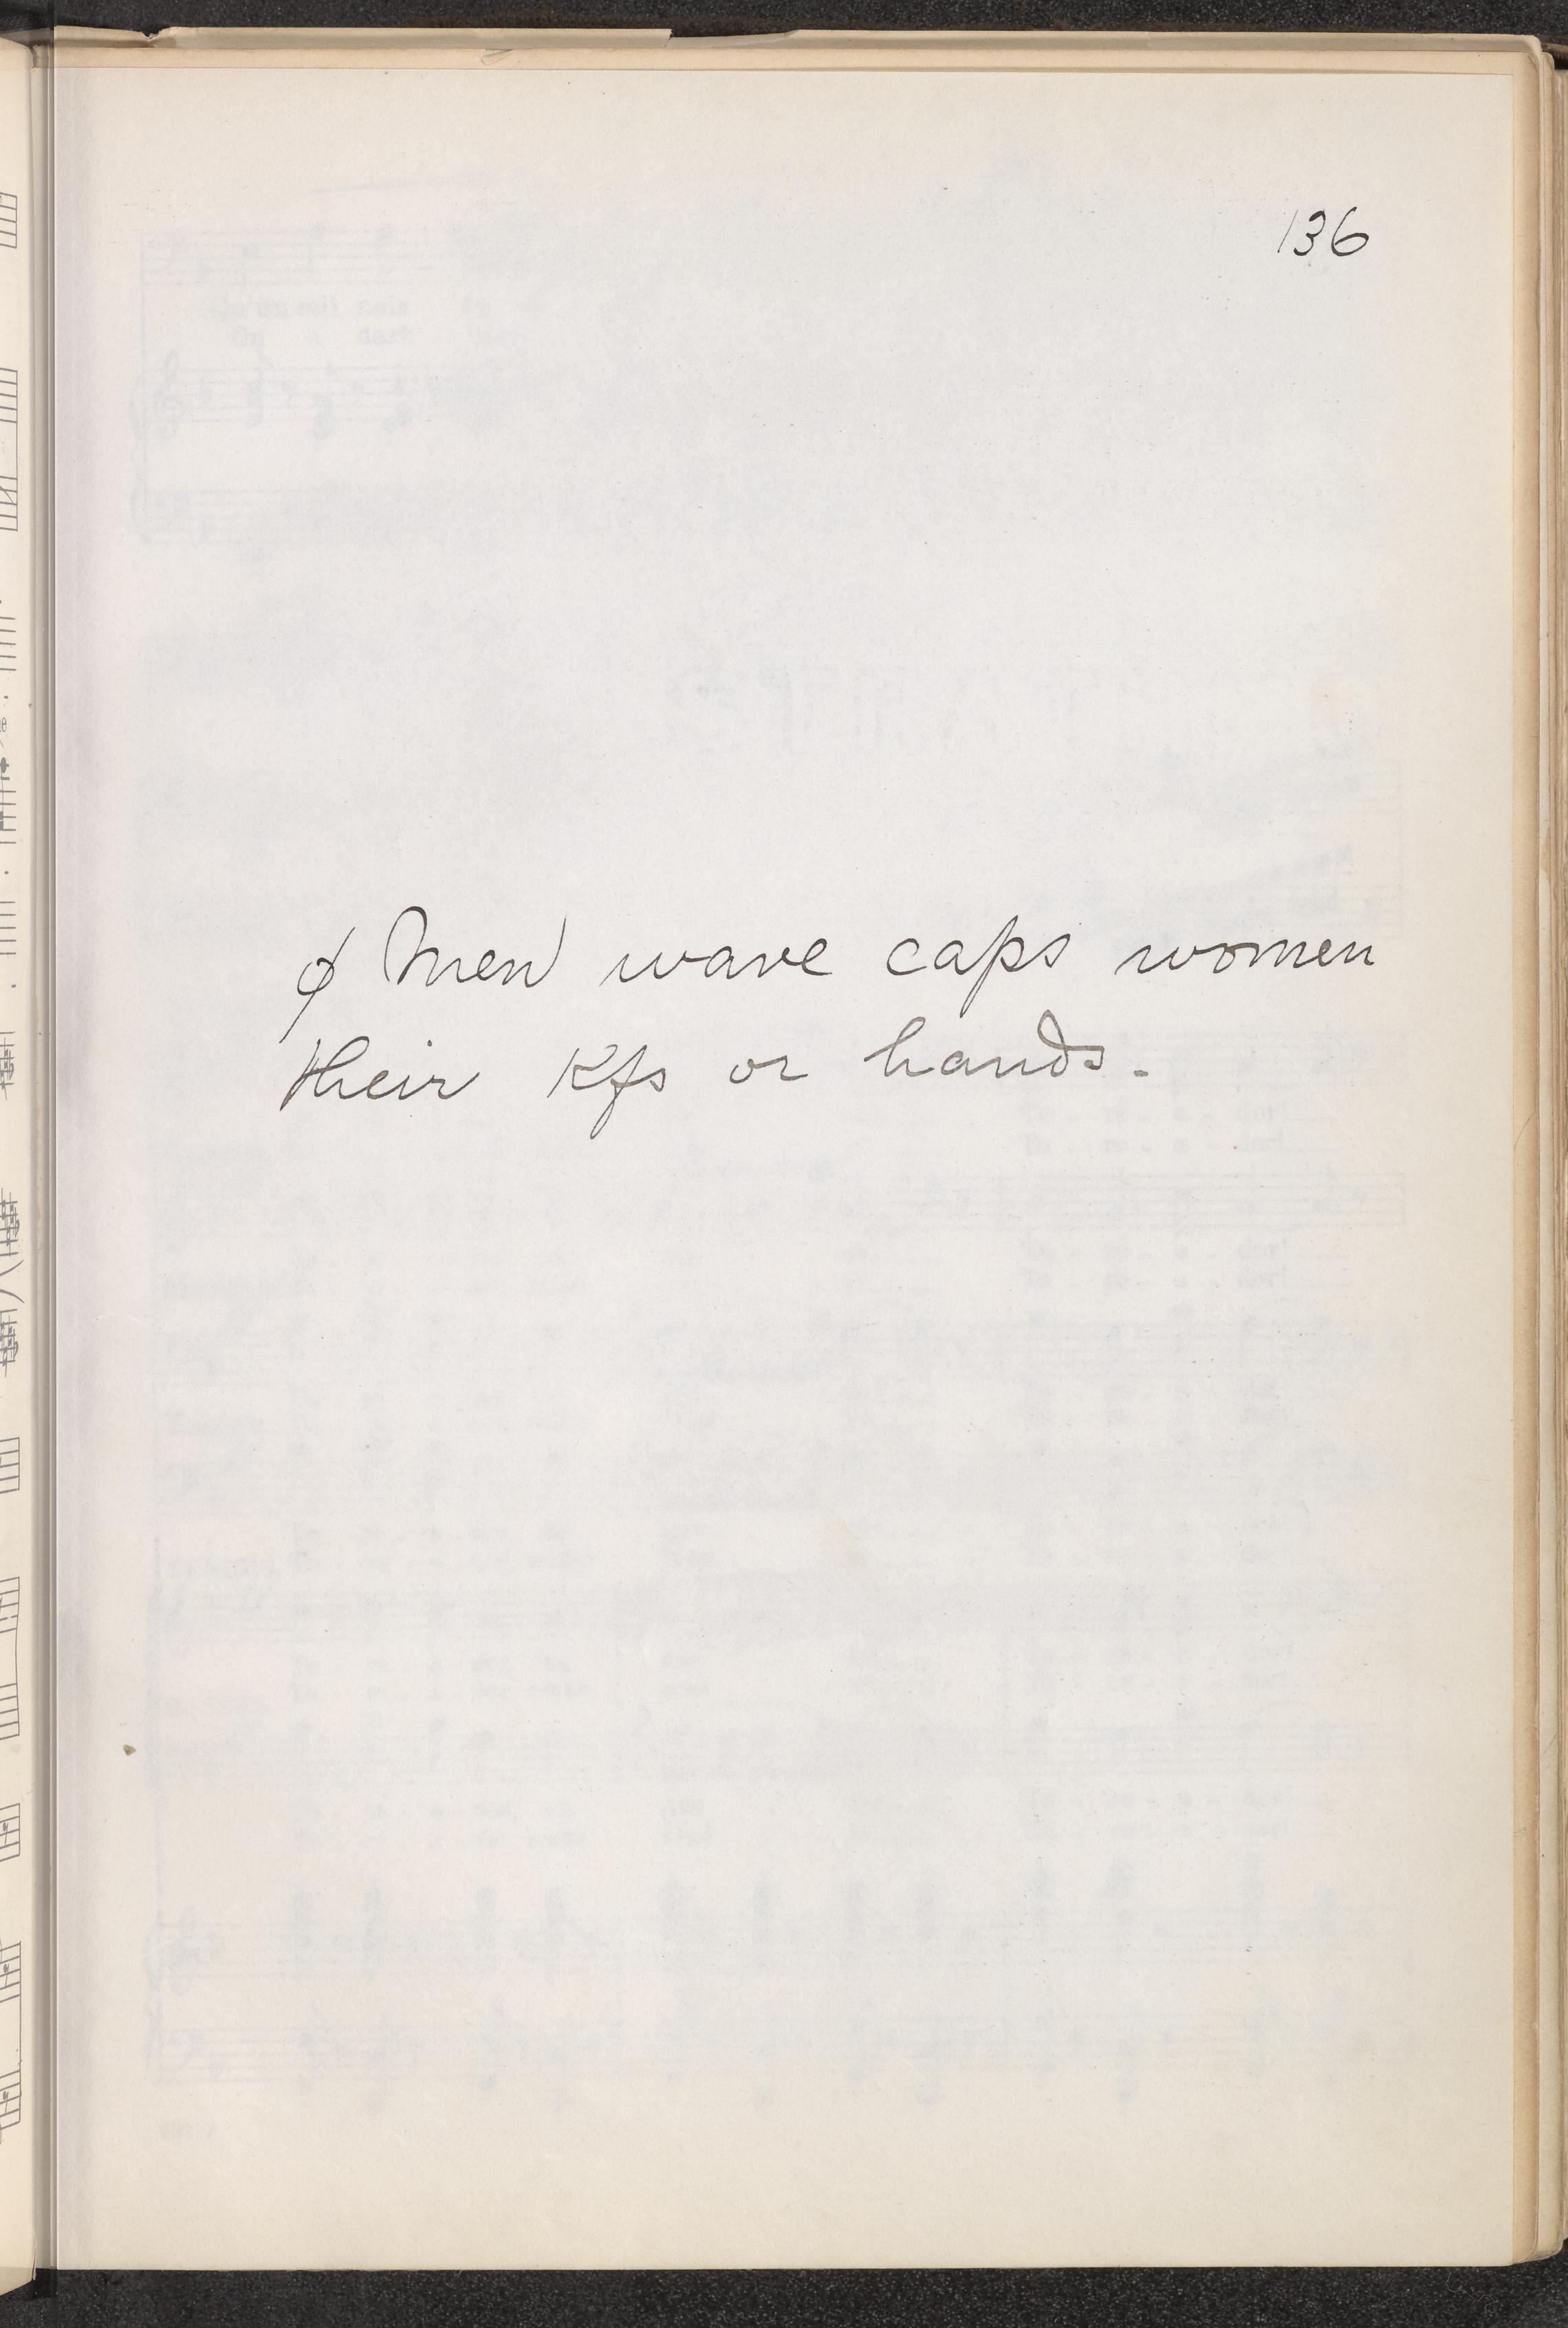 136
ϕ Men wave caps women
their Kfs or hands.